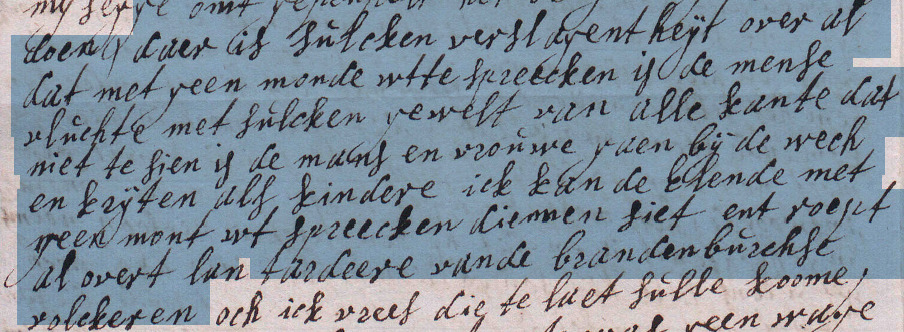 doen daer is sulcken verslagentheyt over al
dat met geen monde wtte spreecken is de mense
vluchte met sulcken gewelt van alle kante dat
niet te sien is de mans en vrouwe gaen bij de wech
en krijten als kindere ick kan de elende met
geen mont wt spreecken diemen siet ent roept
al overt lan tardeere vande brandenburchse
volckeren och ick vrees die te laet sulle koome